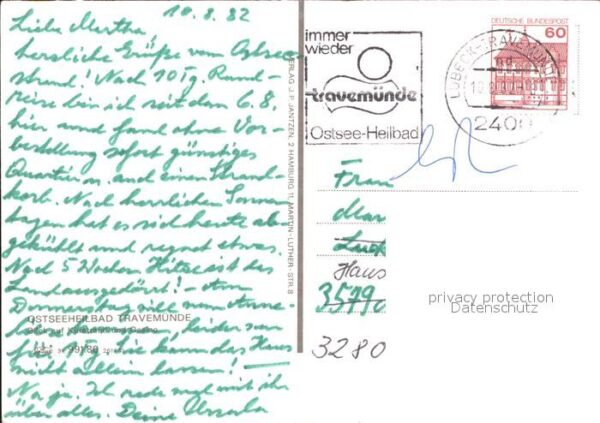 10.8.82
Liebe Martha,
herzliche Grüße vom Ostsee
strand! Nach 10 Tg. Rund-
reise bin ich seit dem 6.8.
hier und fand ohne Vor-
bestellung sofort günstiges
Quartier und einen Strand-
korb. Nach herrlichen Sonnen
tagen hat es sich heute ab-
gekühlt und regnet etwas.
Nach 5 Wochen Hitze ist das
Land ausgedörrt! – Am
Donnerstag will
leider nur
Sie kann das Haus
nicht allein lassen! –
Na ja. Ich rede mal mit ihr
über alles. Deine Ursula
OSTSEEHEILBAD TRAVEMÜNDE
Blick auf Kursaal und Casino
VERLAG J. P. JANTZEN, 2 HAMBURG 11, MARTIN-LUTHER-STR. 8
immer
wieder
travemünde
Ostsee-Heilbad
LÜBECK-TRAVEMÜNDE
2400
DEUTSCHE BUNDESPOST
60
Frau
Mar
Haus
3579
3280
privacy protection
Datenschutz